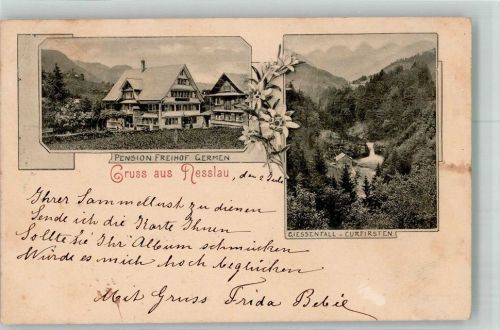 PENSION FREIHOF GERMEN
GIESSENFALL - CURFIRSTEN
Gruss aus Nesslau, den 2 Juli
Ihrer Sammellust zu dienen
Sende ich die Karte Ihnen
Sollte Sie Ihr Album schmücken
Würde es mich hoch beglücken
Mit Gruss Frida Bebié